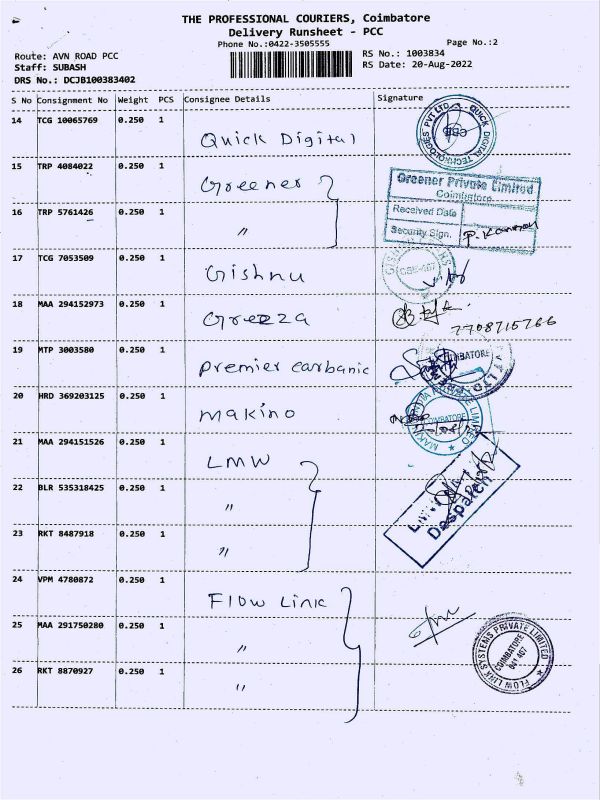 THE PROFESSIONAL COURIERS, Coimbatore
Delivery Runsheet - PCC
Phone No.:0422-3505555 Page No.:2
Route: AVN ROAD PCC RS No.: 1003834
Staff: SUBASH RS Date: 20-Aug-2022
DRS No.: DCJB100383402
S No Consignment No Weight PCS Consignee Details Signature
14 TCG 10065769 0.250 1 Quick Digital
QUICK DIGITAL TECHNOLOGIES PVT LTD
CBE
15 TRP 4084022 0.250 1 Greener
Greener Private Limited
Coimbatore
Received Date
Security Sign.
16 TRP 5761426 0.250 1 "
17 TCG 7053509 0.250 1 Gishnu
18 MAA 294152973 0.250 1 Greeza
7708715766
19 MTP 3003580 0.250 1 Premier carbanic
COIMBATORE
20 HRD 369203125 0.250 1 Makino
COIMBATORE
21 MAA 294151526 0.250 1 LMW
Despatch
22 BLR 535318425 0.250 1 "
23 RKT 8487918 0.250 1 "
24 VPM 4780872 0.250 1 Flow Link
25 MAA 291750280 0.250 1 "
FLOW LINK SYSTEMS PRIVATE LIMITED
COIMBATORE
641 407
26 RKT 8870927 0.250 1 "